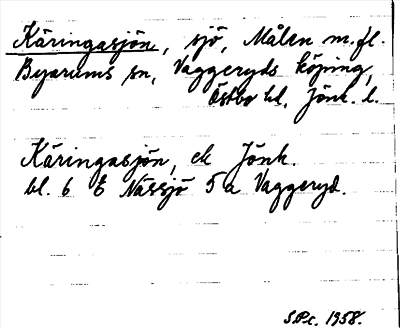 Käringasjön, sjö, Målen m.fl.
Byarums sn, Vaggeryds köping,
Östbo hd, Jönk. l.
Käringasjön, ek Jönk.
bl. 6 E Nässjö 5 a Vaggeryd.
S.Pc. 1958.